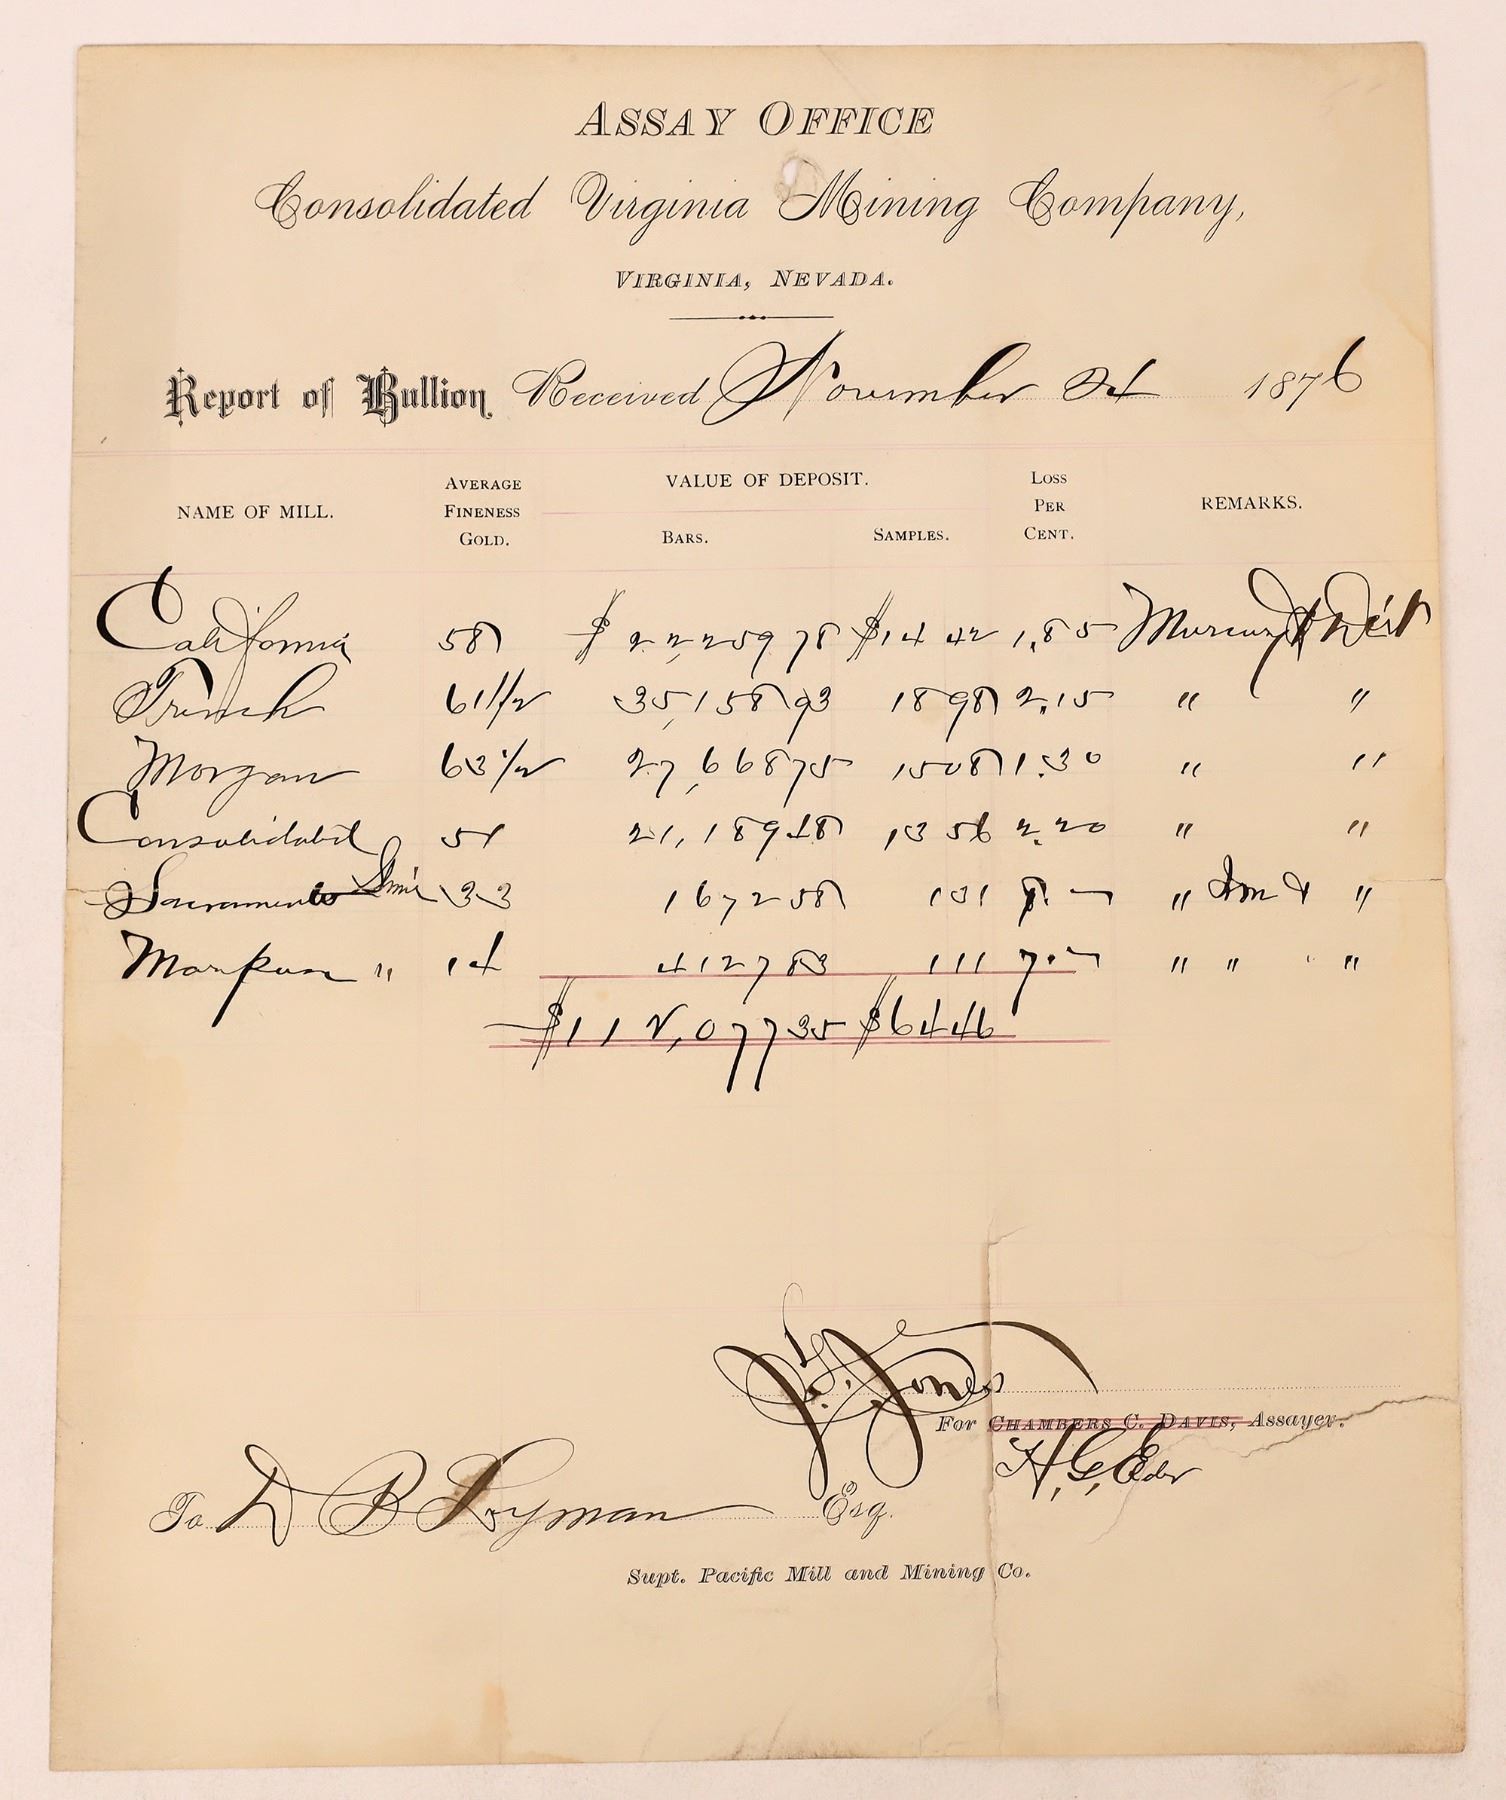 ASSAY OFFICE
Consolidated Virginia Mining Company,
VIRGINIA, NEVADA.
Report of Bullion Received November 24 1876
NAME OF MILL. AVERAGE FINENESS GOLD. VALUE OF DEPOSIT. BARS. SAMPLES. LOSS PER CENT. REMARKS.
California 58 $ 22,259 78 $14 42 1.85 Mercury & Dirt
Trench 61 1/2 35,158 93 18 98 2.15 " "
Morgan 63 1/2 27,668 75 15 08 1.30 " "
Consolidated 51 21,189 48 13 56 2.20 " "
Sacramento 33 1672 58 1 31 8. — " Iron & "
Mariposa " 14 4127 83 1 11 7. — " " "
$112,077 35 $64 46
J. F. Jones
For CHAMBERS C. DAVIS, Assayer.
H. G.
To D B Lyman Esq.
Supt. Pacific Mill and Mining Co.